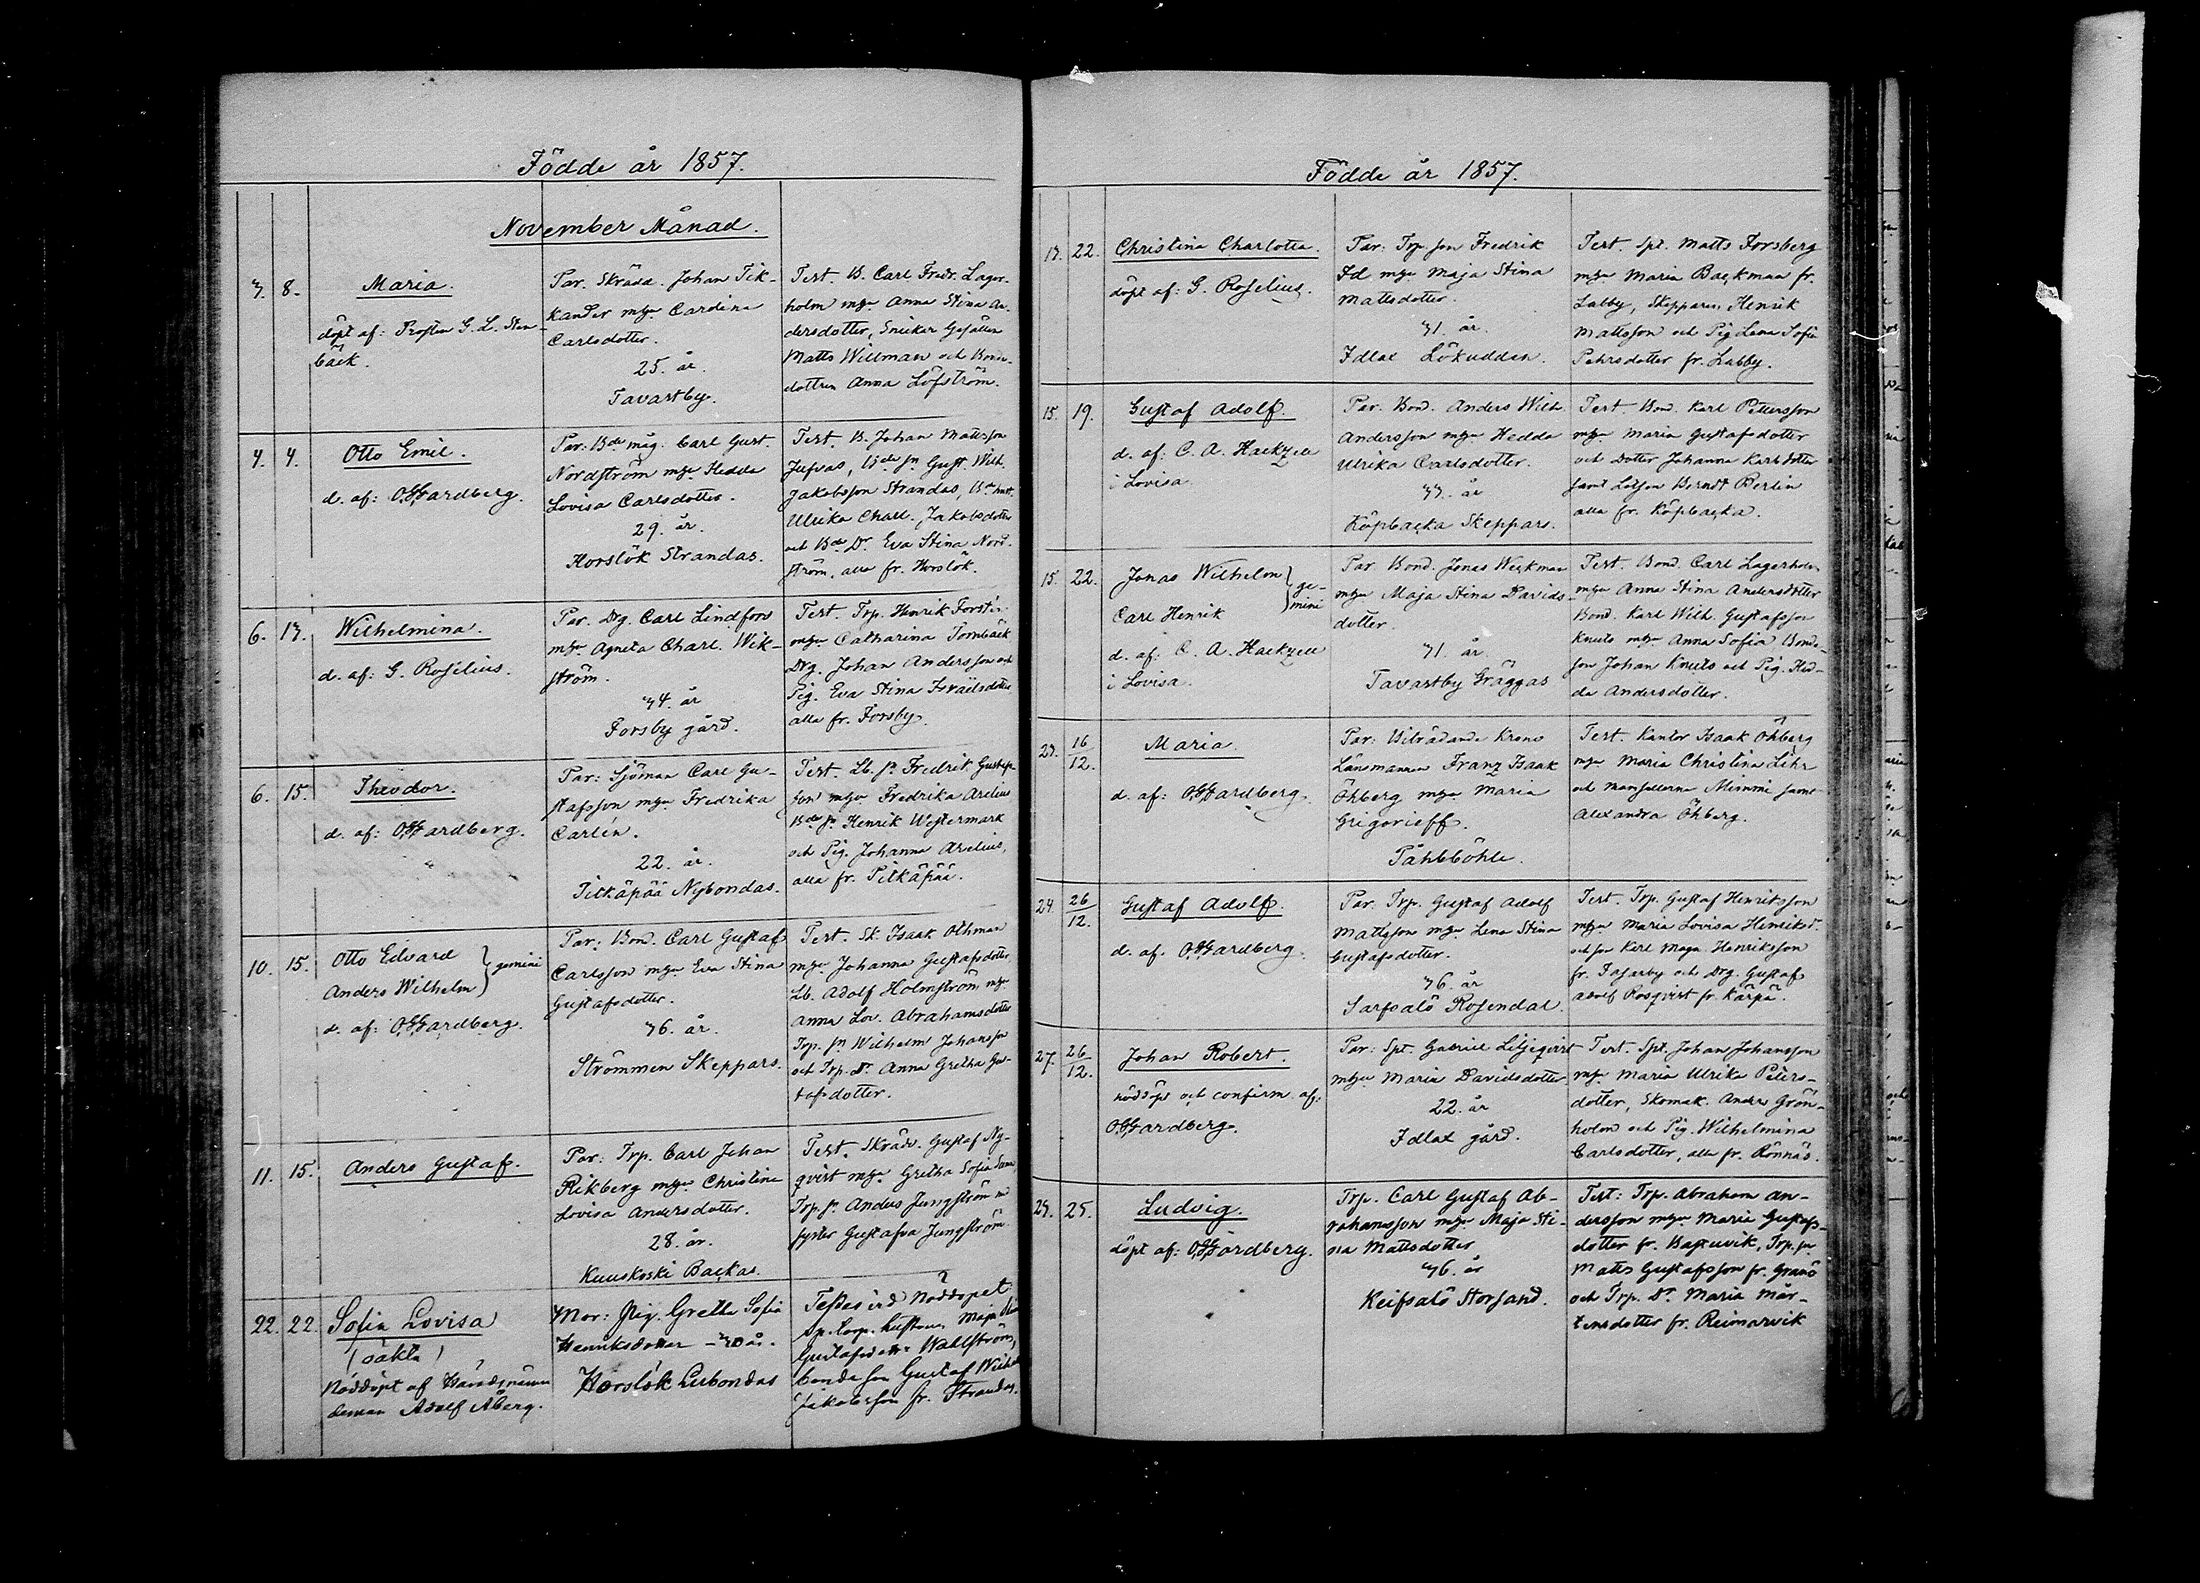 Födde år 1857.
November Månad.
3. 8. Maria.
döpt af: Prosten G. L. Sten-
bäck.
Par. Skrädd. Johan Tik-
kander mhu Carolina
Carlsdotter.
25. år.
Tavastby.
Test. B. Carl Fredr. Lager-
holm mhu Anna Stina An-
dersdotter, Snickar Gesällen
Matts Willman och Bonde-
dottren Anna Löfström.
4. 4. Otto Emil.
d. af: O. F. Gardberg.
Par: Bde måg. Carl Gust.
Nordström mhu Hedda
Lovisa Carlsdotter.
29. år.
Horslök Strandas.
Test. B. Johan Mattsson
Jufvas, Bde sn Gust. Wilh.
Jakobsson Strandas, Bde
Ulrika Charl. Jakobsdotter
och Bde Dr Eva Stina Nord-
ström, alla fr. Horslök.
6. 13. Wilhelmina.
d. af: G. Roselius.
Par. Drg. Carl Lindfors
mhu Agneta Charl. Wik-
ström.
34. år
Forsby gård.
Test. Trp. Henrik Forstén
mhu Catharina Tornbäck
Drg. Johan Andersson och
Pig. Eva Stina Israelsdotter
alla fr. Forsby.
6. 15. Theodor.
d. af: O. F. Gardberg.
Par: Sjöman Carl Gu-
stafsson mhu Fredrika
Carlén.
22. år.
Pitkäpää Nybondas.
Test. Lb. sn Fredrik Gustafs-
son mhu Fredrika Arelius
Bde sn Henrik Westermark
och Pig. Johanna Arelius,
alla fr. Pitkäpää.
10. 15. Otto Edvard
Anders Wilhelm } gemini
d. af: O. F. Gardberg.
Par: Bond. Carl Gustaf
Carlsson mhu Eva Stina
Gustafsdotter.
36. år.
Strömmen Skeppars.
Test. Sk. Isaak Othman
mhu Johanna Gustafsdotter,
Lb. Adolf Holmström mhu
Anna Lov. Abrahamsdotter
Trp. sn Wilhelm Johansson
och Trp. Dr Anna Gretha Gus-
tafsdotter.
11. 15. Anders Gustaf.
Par: Trp. Carl Johan
Rikberg mhu Christina
Lovisa Andersdotter.
28. år.
Kuuskoski Backas.
Test. Skrädd. Gustaf Ny-
qvist mhu Gretha Sofia
Trp. sn Anders Jungström
syster Gustafva Jungström
22. 22. Sofia Lovisa
(oäkta)
Nöddöpt af Häradsnämn
deman Adolf Åberg.
Mor: Pig. Gretha Sofia
Henriksdotter – 30 år.
Horslök Lisbondas
Testes vid Nöddopet
Sp. Torp. hustrun Maja
Gustafsdotter Wahlström,
bondeson Gustaf Wilh
Jakobsson fr. Strandas.
Födde år 1857.
13. 22. Christina Charlotta.
döpt af: G. Roselius.
Par: Trp. son Fredrik
Id mhu Maja Stina
Mattsdotter.
31. år.
Idlax Lökudden.
Test. Spt. Matts Forsberg
mhu Maria Backman fr.
Labby, Skepparen Henrik
Mattsson och Pig Lena Sofia
Pehrsdotter fr. Labby.
15. 19. Gustaf Adolf.
d. af: C. A. Hackzell
i Lovisa.
Par. Bond. Anders Wilh.
Andersson mhu Hedda
Ulrika Carlsdotter.
33. år
Köpbacka Skeppars.
Test. Bond. Karl Pettersson
mhu Maria Gustafsdotter
och Dotter Johanna Karlsdotter
samt Lotsen Berndt Berlin
alla fr. Köpbacka.
15. 22. Jonas Wilhelm
Carl Henrik } ge-
mini
d. af: C. A. Hackzell
i Lovisa.
Par Bond. Jonas Weckman
mhu Maja Stina Davids-
dotter.
31. år
Tavastby Gräggas
Test. Bond. Carl Lagerholm
mhu Anna Stina Andersdotter
Bond. Karl Wilh. Gustafsson
Knuts mhu Anna Sofia Bonde-
son Johan Knuts och Pig. Hed-
da Andersdotter.
23. 16/12. Maria.
d. af: O. F. Gardberg.
Par: Biträdande Krono
Länsmannen Franz Isaak
Öhberg mhu Maria
Grigorieff.
Påhlböhle.
Test. Kantor Isaak Öhberg
mhu Maria Christina Lihr
och Mamsellerna Mimmi samt
Alexandra Öhberg.
24. 26/12. Gustaf Adolf.
d. af: O. F. Gardberg.
Par. Trp. Gustaf Adolf
Mattsson mhu Lena Stina
Gustafsdotter.
36. år
Sarfsalö Rosendal.
Test. Trp. Gustaf Henriksson
mhu Maria Lovisa Henriksd.
och sn Karl Magn. Henriksson
fr. Fasarby och Drg. Gustaf
Adolf Rosqvist fr. Kärpä.
27. 26/12. Johan Robert.
nöddöpt och confirm. af:
O. F. Gardberg.
Par: Spt. Gabriel Liljeqvist
mhu Maria Davidsdotter
22. år
Idlax gård.
Test. Spt. Johan Johansson
mhu Maria Ulrika Peters-
dotter, Skomak. Anders Grön-
holm och Pig. Wilhelmina
Carlsdotter, alla fr. Rönnäs.
23. 25. Ludvig.
döpt af: O. F. Gardberg.
Trp. Carl Gustaf Ab-
rahamsson mhu Maja Sti-
na Mattsdotter
36. år
Keifsalö Storsand.
Test: Trp. Abraham An-
dersson mhu Maria Gustafs-
dotter fr. Bastuvik, Trp. sn
Matts Gustafsson fr. Granö
och Trp. Dr Maria Mår-
tensdotter fr. Reimarvik